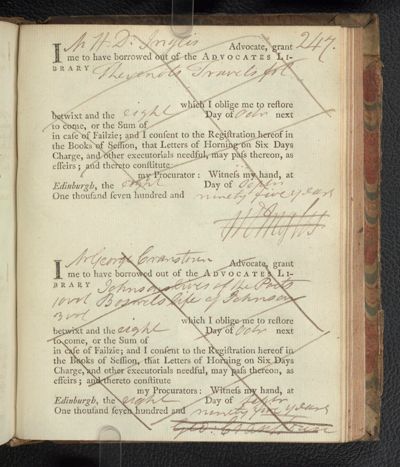 247.
I Mr H. D. Inglis Advocate, grant
me to have borrowed out of the ADVOCATES LI-
BRARY Thevenots Travels fol
which I oblige me to reſtore
betwixt and the eight Day of Octr next
to come, or the Sum of
in caſe of Failzie; and I conſent to the Regiſtration hereof in
the Books of Seſſion, that Letters of Horning on Six Days
Charge, and other executorials needful, may paſs thereon, as
effeirs; and thereto conſtitute
my Procurator: Witneſs my hand, at
Edinburgh, the eight Day of Septr
One thouſand ſeven hundred and ninety five years
HD Inglis
I Mr George Cranstoun Advocate, grant
me to have borrowed out of the ADVOCATES LI-
BRARY Johnsons lives of the Poets
10 vol Boswels life of Johnson
3 vol
which I oblige me to reſtore
betwixt and the eight Day of Octr next
to come, or the Sum of
in caſe of Failzie; and I conſent to the Regiſtration hereof in
the Books of Seſſion, that Letters of Horning on Six Days
Charge, and other executorials needful, may paſs thereon, as
effeirs; and thereto conſtitute
my Procurators: Witneſs my hand, at
Edinburgh, the eight Day of Septr
One thouſand ſeven hundred and ninety five years
Geo. Cranstoun